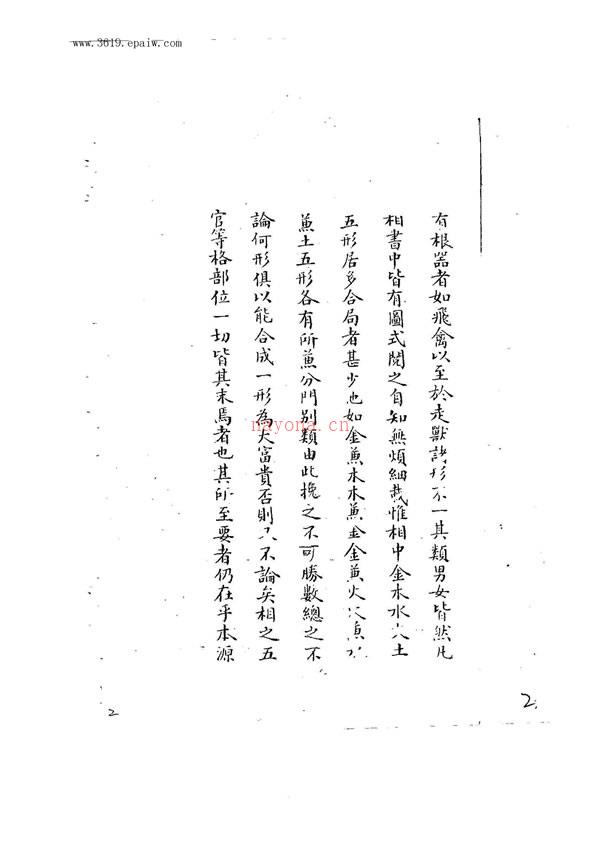 www.3619.epaiw.com
有根器者如飛禽以至於走獸諸形不一其類男女皆然凡
相書中皆有圖式閱之自知無煩細載惟相中金木水火土
五形居多合局者甚少也如金蒹木木蒹金金蒹火火蒹
蒹土五形各有所蒹分門別類由此挽之不可勝數總之不
論何形俱以能合成一形為大富貴否則又不論矣相之五
官等格部位一切皆其末焉者也其所至要者仍在乎本源
nayona.cn
2
2